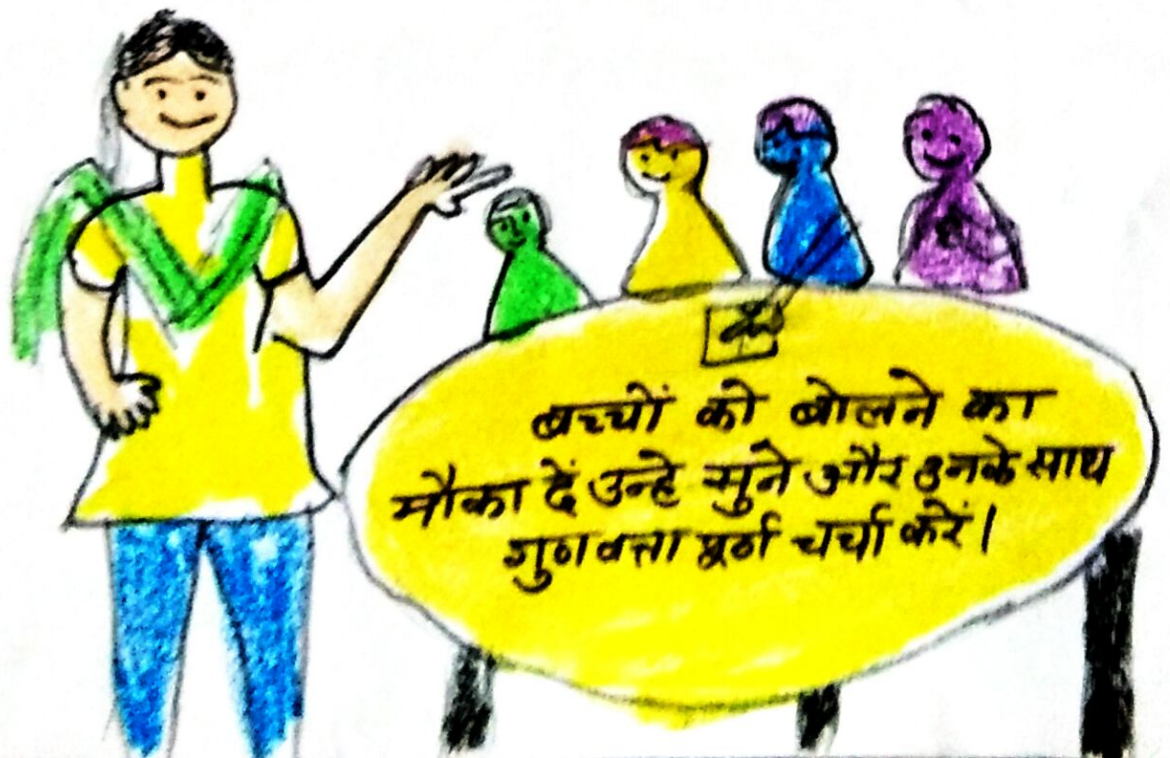 बच्चों को बोलने का
मौका दें उन्हे सुने और उनके साथ
गुणवत्ता पूर्ण चर्चा करें।